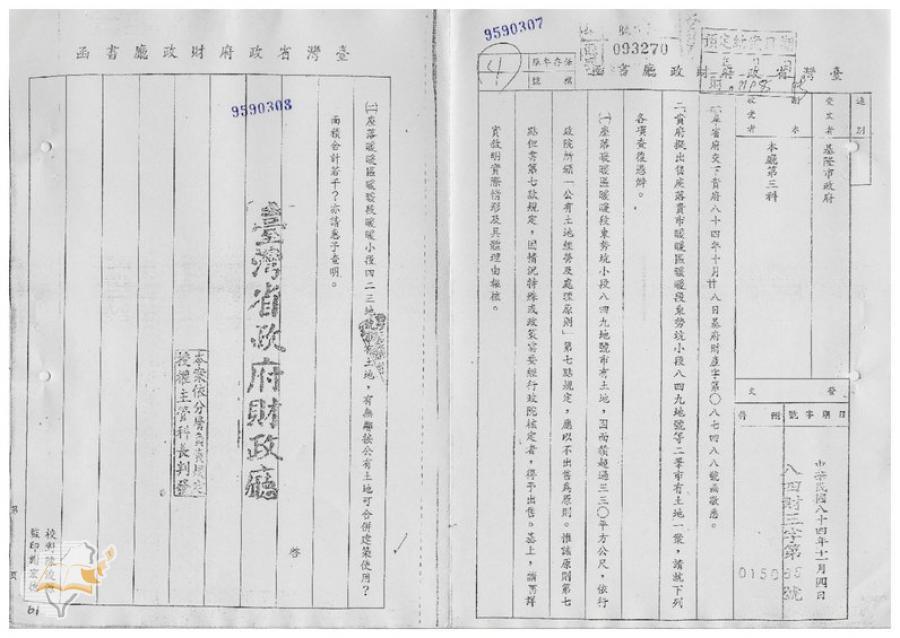 9590307
093270
預定結案日期
保存年限
檔號
臺灣省政府財政廳書函
速別
受文者
基隆市政府
副本
收受者
本廳第三科
發文
日期
字號
附件
中華民國八十四年十一月四日
八四財三字第
號
一、奉省府交下貴府八十四年十月廿八日基府財產字第〇八七四八八號函敬悉。
二、貴府擬出售座落貴市暖暖區暖暖段東勢坑小段八四九地號等二筆市有土地一案,請就下列
各項查復過辦。
(一)座落暖暖區暖暖段東勢坑小段八四九地號市有土地,因面積超過三三〇平方公尺,依行
政院所頒「公有土地經營及處理原則」第七點規定,應以不出售為原則。惟該原則第七
點但書第七款規定,因情況特殊或政策需要經行政院核定者,得予出售。基上,請再詳
實敘明實際情形及具體理由報核。
臺灣省政府財政廳書函
9590308
(二)座落暖暖區暖暖段暖暖小段四二三地號市有土地,有無鄰接公有土地可合併建築使用?
面積合計若干?亦請惠予查明。
臺灣省政府財政廳
啓
本案依分層負責規定
授權主管科長判發
第
頁
校對陳
監印
61